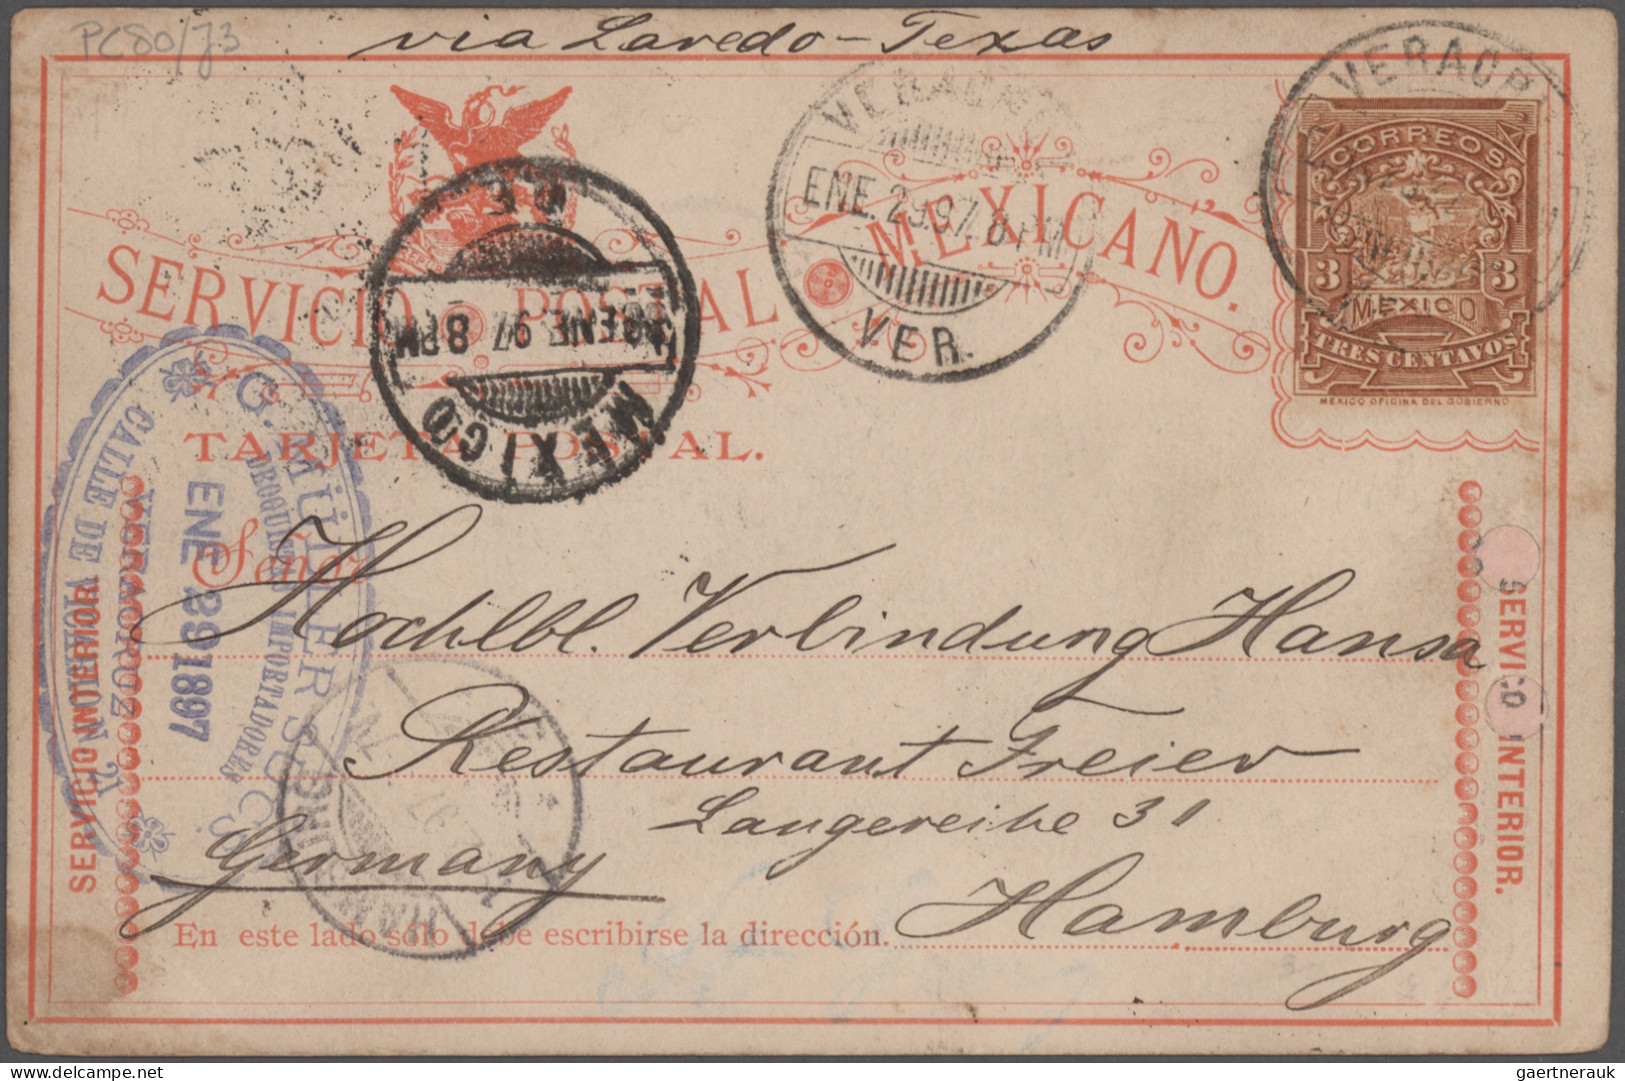 PC80/73
via Laredo-Texas
VERACRUZ
ENE. 29.97. 8 PM
VER.
VERACR
CORREOS
3 3
MEXICO
TRES CENTAVOS
MEXICO OFICINA DEL GOBIERNO
SERVICIO POSTAL MEXICANO.
MEXICO
ENE 97 8 PM
TARJETA POSTAL.
Señor
G. MÜLLER SUCS
DROGUISTAS IMPORTADORES
ENE 29 1897
VERACRUZ
CALLE DE VICARIO N. 24
Hochlbl. Verbindung Hansa
Restaurant Freier
Langereihe 31
Germany
Hamburg
HAMBURG
En este lado sólo debe escribirse la dirección.
SERVICIO INTERIOR
SERVICIO INTERIOR.
gaertnerauk